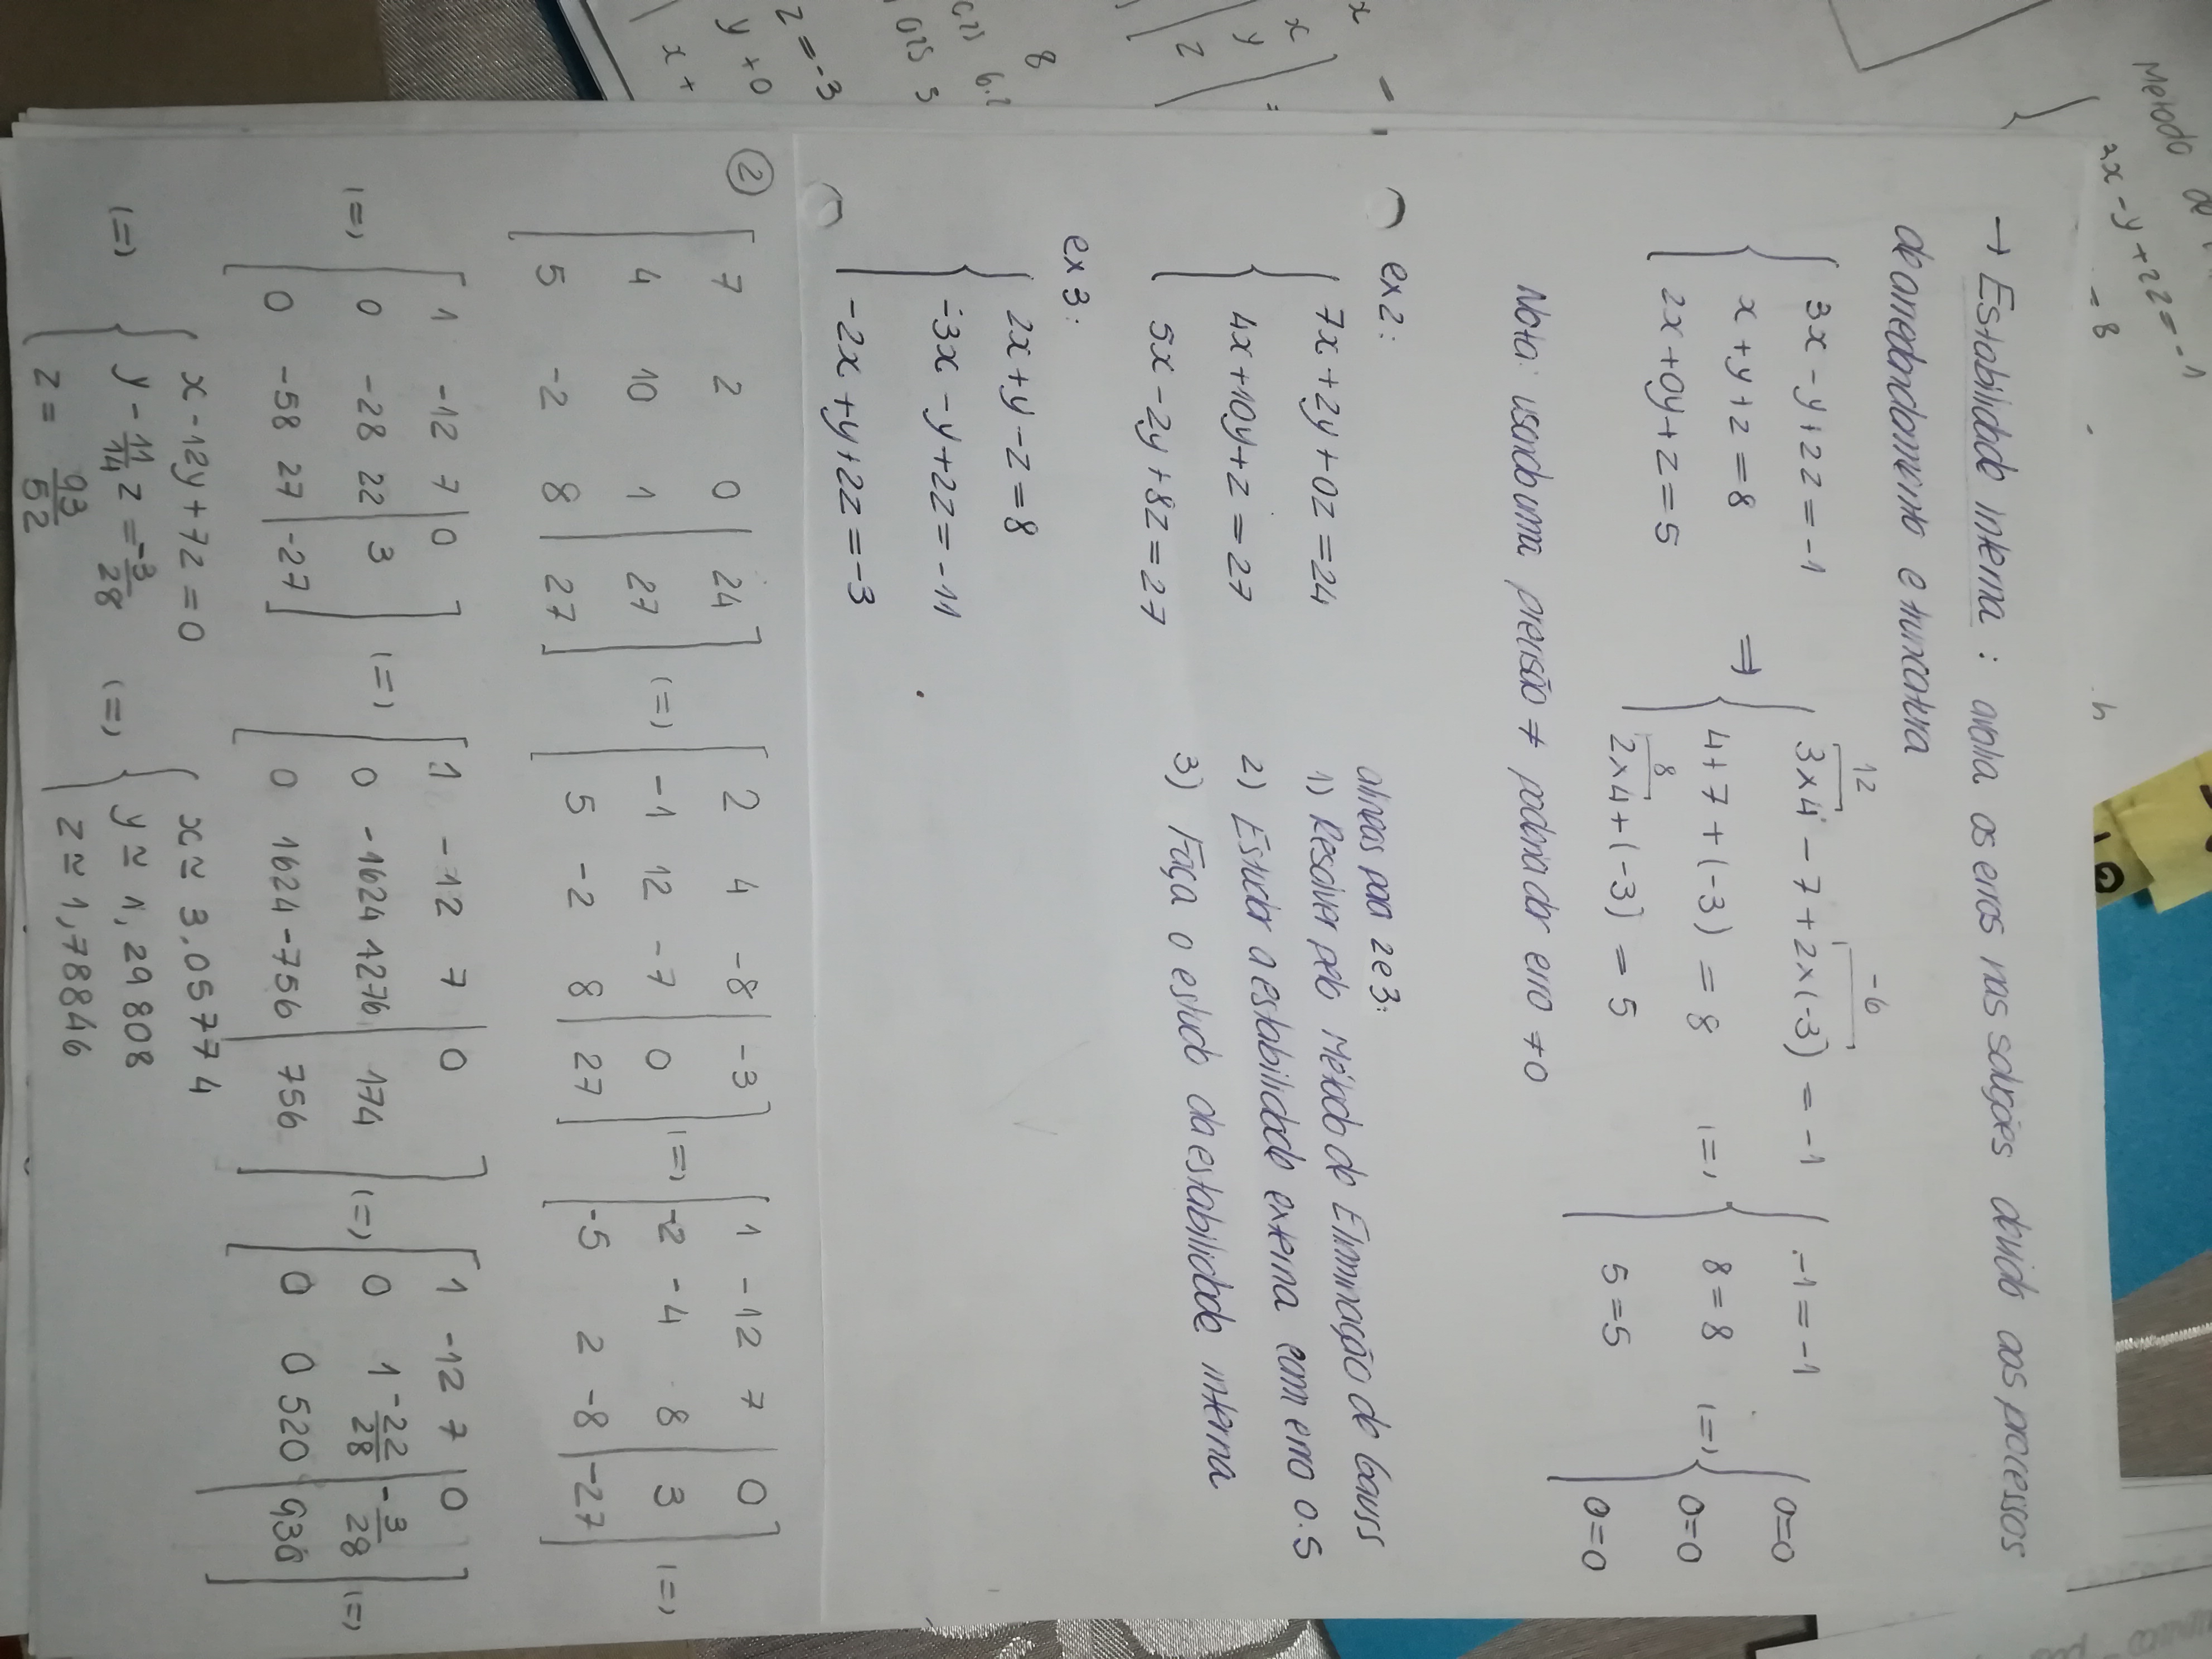 Metodo de
3x - y + 2z = -1
= 8
→ Estabilidade interna : avalia os erros nas soluções devido aos processos
de arredondamento e truncatura
12
-6
3x - y + 2z = -1
x + y + z = 8
2x + 0y + z = 5
=>
3×4 - 7 + 2×(-3) = -1
4 + 7 + (-3) = 8
8
2×4 + (-3) = 5
(=)
-1 = -1
8 = 8
5 = 5
(=)
0=0
0=0
0=0
Nota: usando uma precisão ≠ poderia dar erro ≠ 0
ex 2:
7x + 2y + 0z = 24
4x + 10y + z = 27
5x - 2y + 8z = 27
alíneas para 2 e 3:
1) Resolver pelo Método de Eliminação de Gauss
2) Estudar a estabilidade externa com erro 0.5
3) Faça o estudo da estabilidade interna
ex 3:
2x + y - z = 8
-3x - y + 2z = -11
-2x + y + 2z = -3
x
x
y =
z
8
z = -3
y + 0
x +
②
7 2 0 | 24
4 10 1 | 27
5 -2 8 | 27
(=)
2 4 -8 | -3
-1 12 -7 | 0
5 -2 8 | 27
(=)
1 -12 7 | 0
-2 -4 8 | 3
-5 2 -8 | -27
(=)
(=)
1 -12 7 | 0
0 -28 22 | 3
0 -58 27 | -27
(=)
1 -12 7 | 0
0 -1624 1276 | 174
0 1624 -756 | 756
(=)
1 -12 7 | 0
0 1 -22/28 | -3/28
0 0 520 | 930
(=)
(=)
x - 12y + 7z = 0
y - 11/14 z = -3/28
z = 93/52
(=)
x ≃ 3.05774
y ≃ 1,29808
z ≃ 1,78846